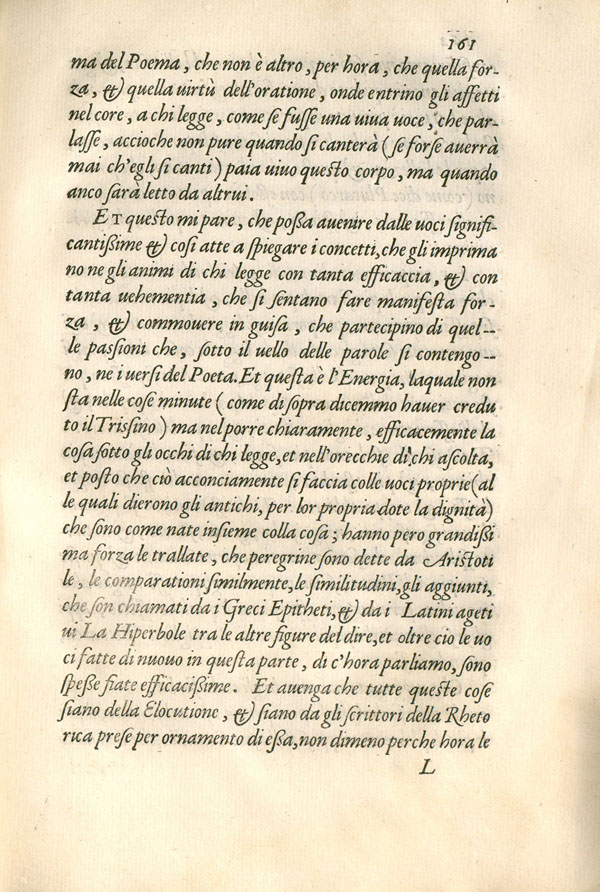 161
ma del Poema, che non è altro, per hora, che quella for-
za, & quella uirtù dell'oratione, onde entrino gli affetti
nel core, a chi legge, come se fusse una uiua uoce, che par-
lasse, accioche non pure quando si canterà (se forse auerrà
mai ch'egli si canti) paia uiuo questo corpo, ma quando
anco sarà letto da altrui.
ET questo mi pare, che possa auenire dalle uoci signifi-
cantissime & cosi atte a spiegare i concetti, che gli imprima
no ne gli animi di chi legge con tanta efficaccia, & con
tanta uehementia, che si sentano fare manifesta for-
za, & commouere in guisa, che partecipino di quel--
le passioni che, sotto il uello delle parole si contengo--
no, ne i uersi del Poeta. Et questa è l'Energia, laquale non
sta nelle cose minute (come di sopra dicemmo hauer credu
to il Trissino) ma nel porre chiaramente, efficacemente la
cosa sotto gli occhi di chi legge, et nell'orecchie di chi ascolta,
et posto che ciò acconciamente si faccia colle uoci proprie (al
le quali dierono gli antichi, per lor propria dote la dignità)
che sono come nate insieme colla cosa; hanno pero grandissi
ma forza le trallate, che peregrine sono dette da Aristoti
le, le comparationi similmente, le similitudini, gli aggiunti,
che son chiamati da i Greci Epitheti, & da i Latini ageti
ui La Hiperbole tra le altre figure del dire, et oltre cio le uo
ci fatte di nuouo in questa parte, di c'hora parliamo, sono
spesse fiate efficacissime. Et auenga che tutte queste cose
siano della Elocutione, & siano da gli scrittori della Rheto
rica prese per ornamento di essa, non dimeno perche hora le
L